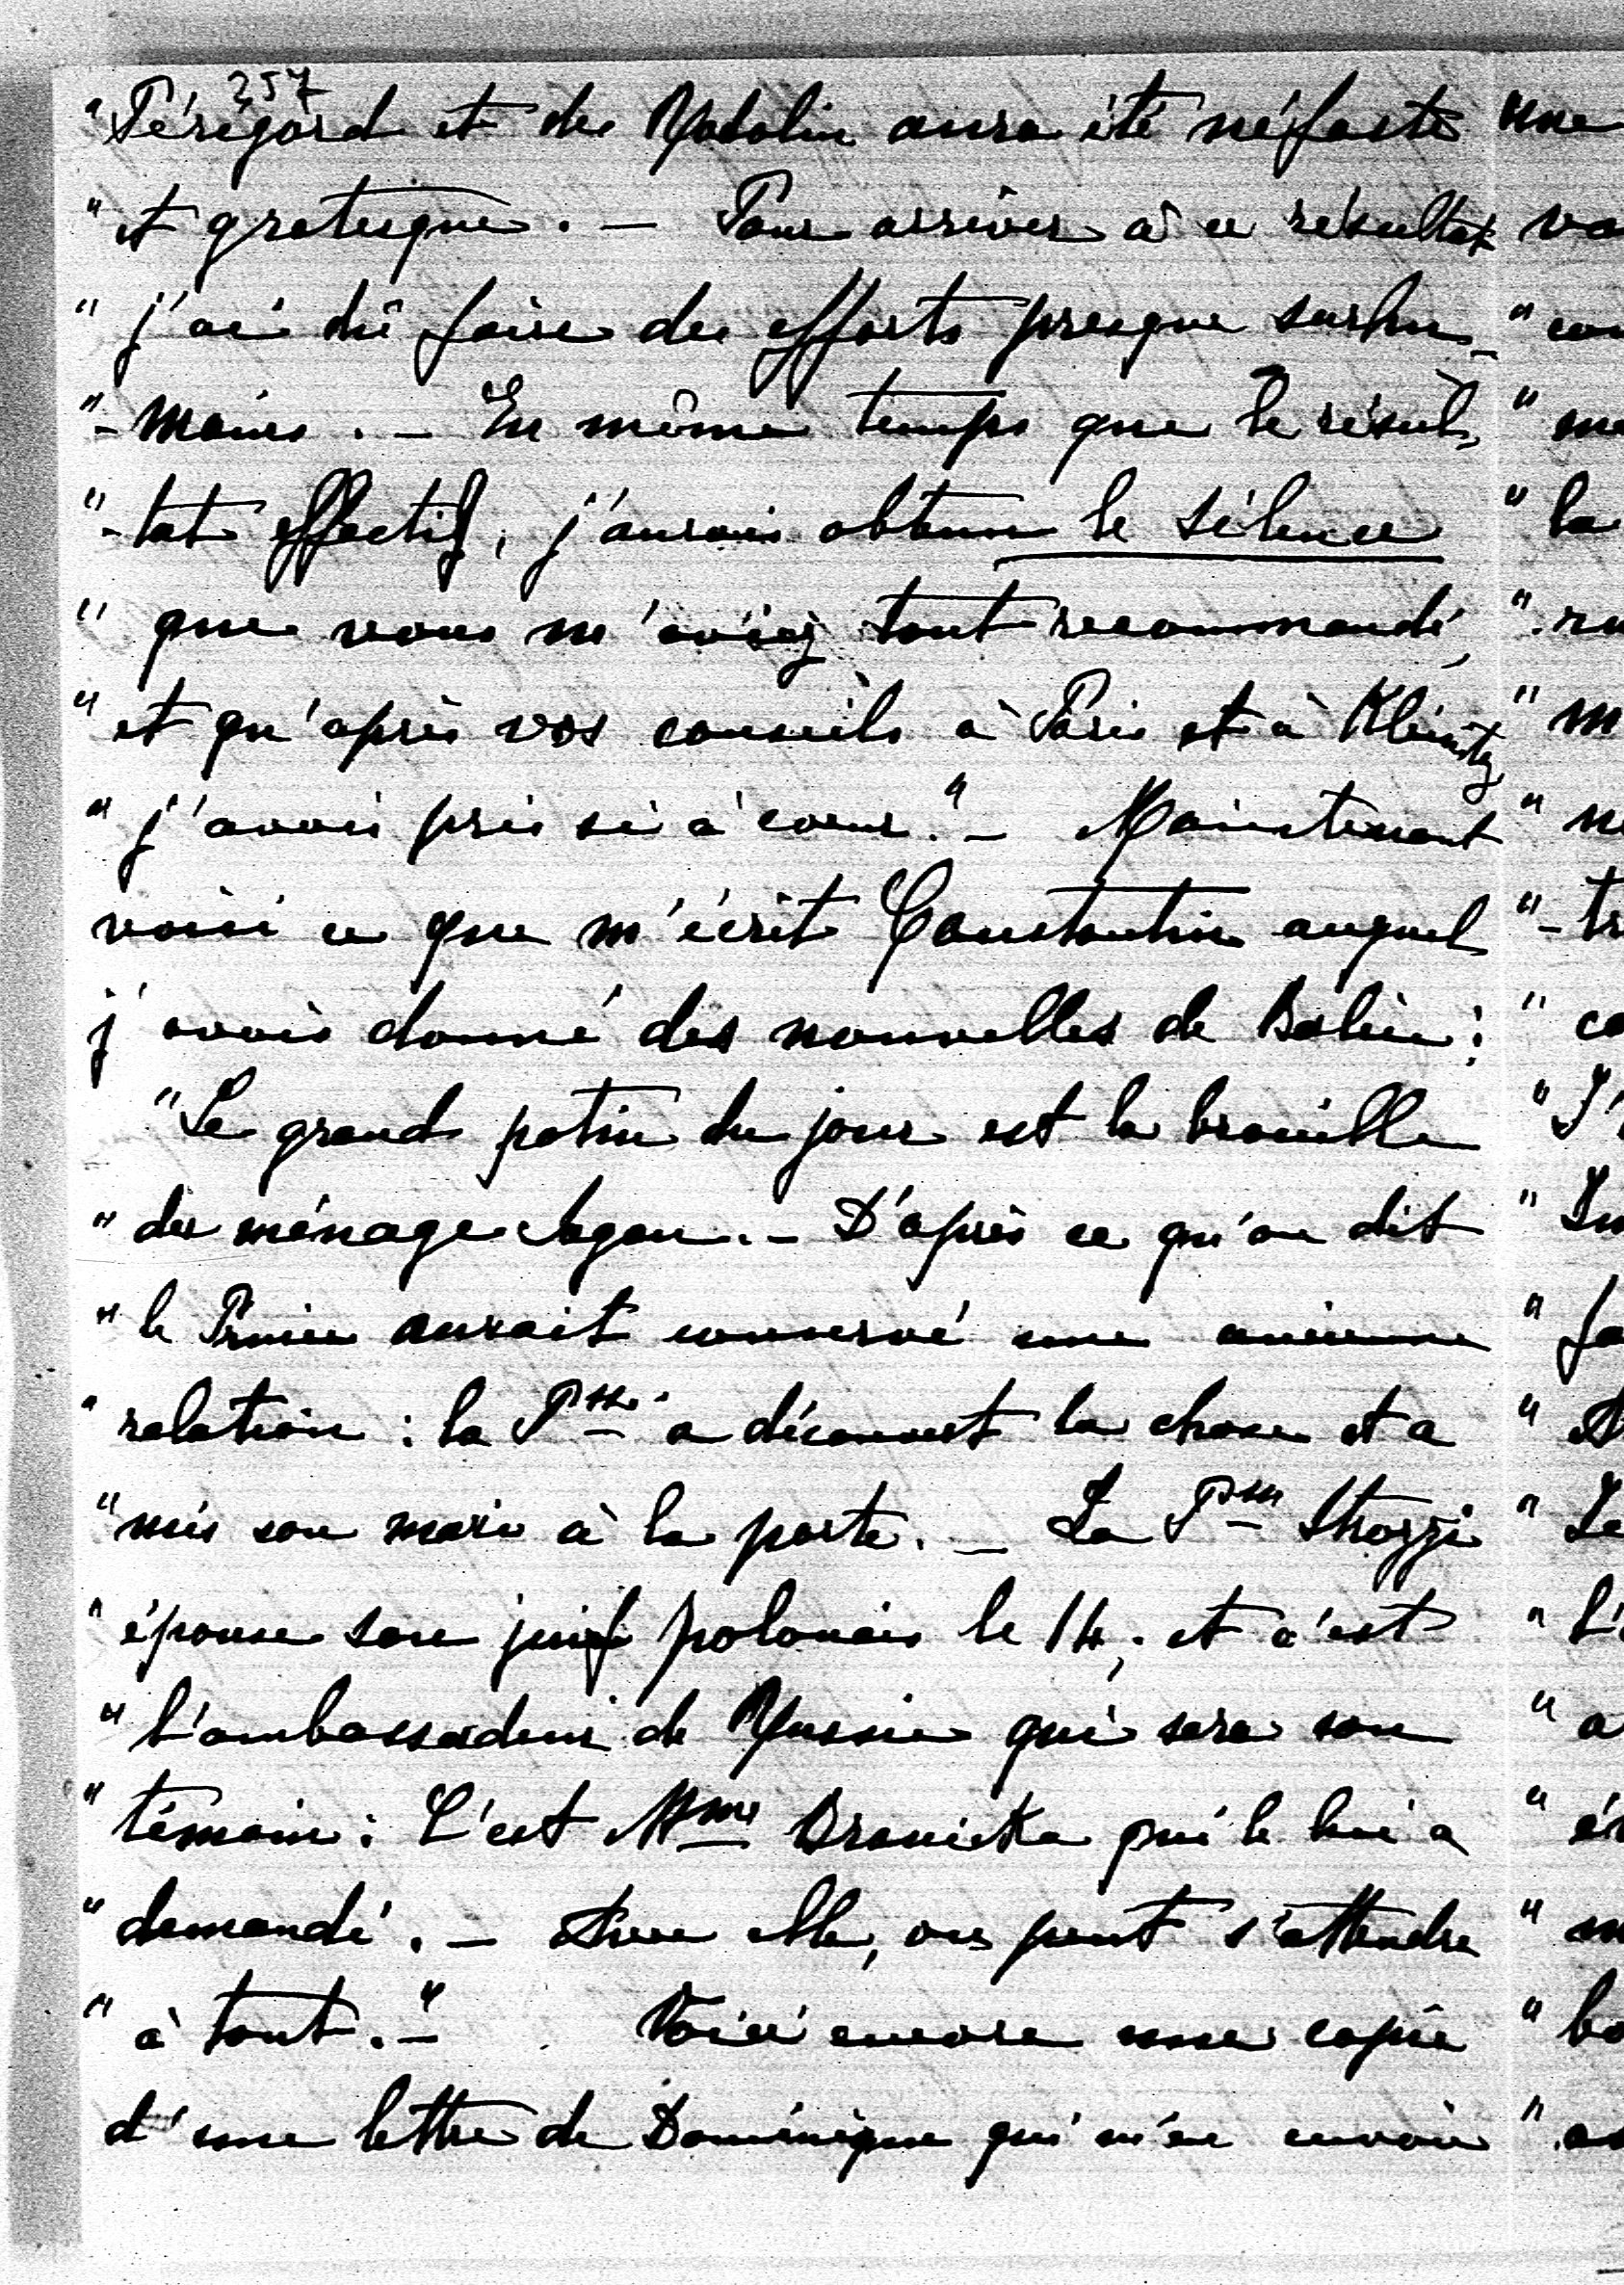 257
"Périgord et de Radolin aura été néfaste
"et grotesque. — Pour arriver à ce résultat
"j'ai dû faire des efforts presque surhu-
"-mains. — En même temps que le résul-
"-tat effectif, j'aurais obtenu le silence
"que vous m'aviez tant recommandé,
"et qu'après vos conseils à Paris et à Kleinitz
"j'avais pris si à cœur." — Maintenant
voici ce que m'écrit Constantin auquel
j'avais donné des nouvelles de Berlin:
"Le grand potin du jour est la brouille
"du ménage Sagan. — D'après ce qu'on dit
"le Prince aurait conservé une ancienne
"relation: la Psse a découvert la chose et a
"mis son mari à la porte. — La Psse Strozzi
"épouse son juif polonais le 14; et c'est
"l'ambassadeur de Russie qui sera son
"témoin: C'est Mme Branicka qui le lui a
"demandé. — Avec elle, on peut s'attendre
"à tout. —" Voici encore une copie
d'une lettre de Dominique qui m'en envoie